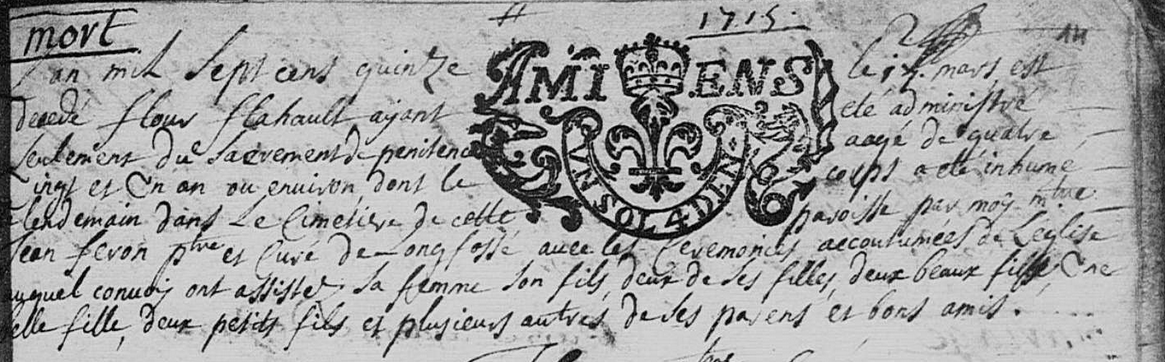 mort
1715.
AMIENS
UN SOL 4 DEN.
L'an mil Sept cens quinze le 17. mars est
decedé flour flahault ayant eté administré
seulement du Sacrement de penitence aagé de quatre
vingt et Un an ou environ dont le corps a eté inhumé
le lendemain dans Le Cimetiere de cette paroisse par moy mtre
Jean feron ptre et Curé de Longfossé avec les Ceremonies accoutumées de L'eglise
auquel convoy ont assistez sa femme son fils, deux de ses filles, deux beaux fils, Une
belle fille, deux petits fils et plusieurs autres de ses parens et bons amis.